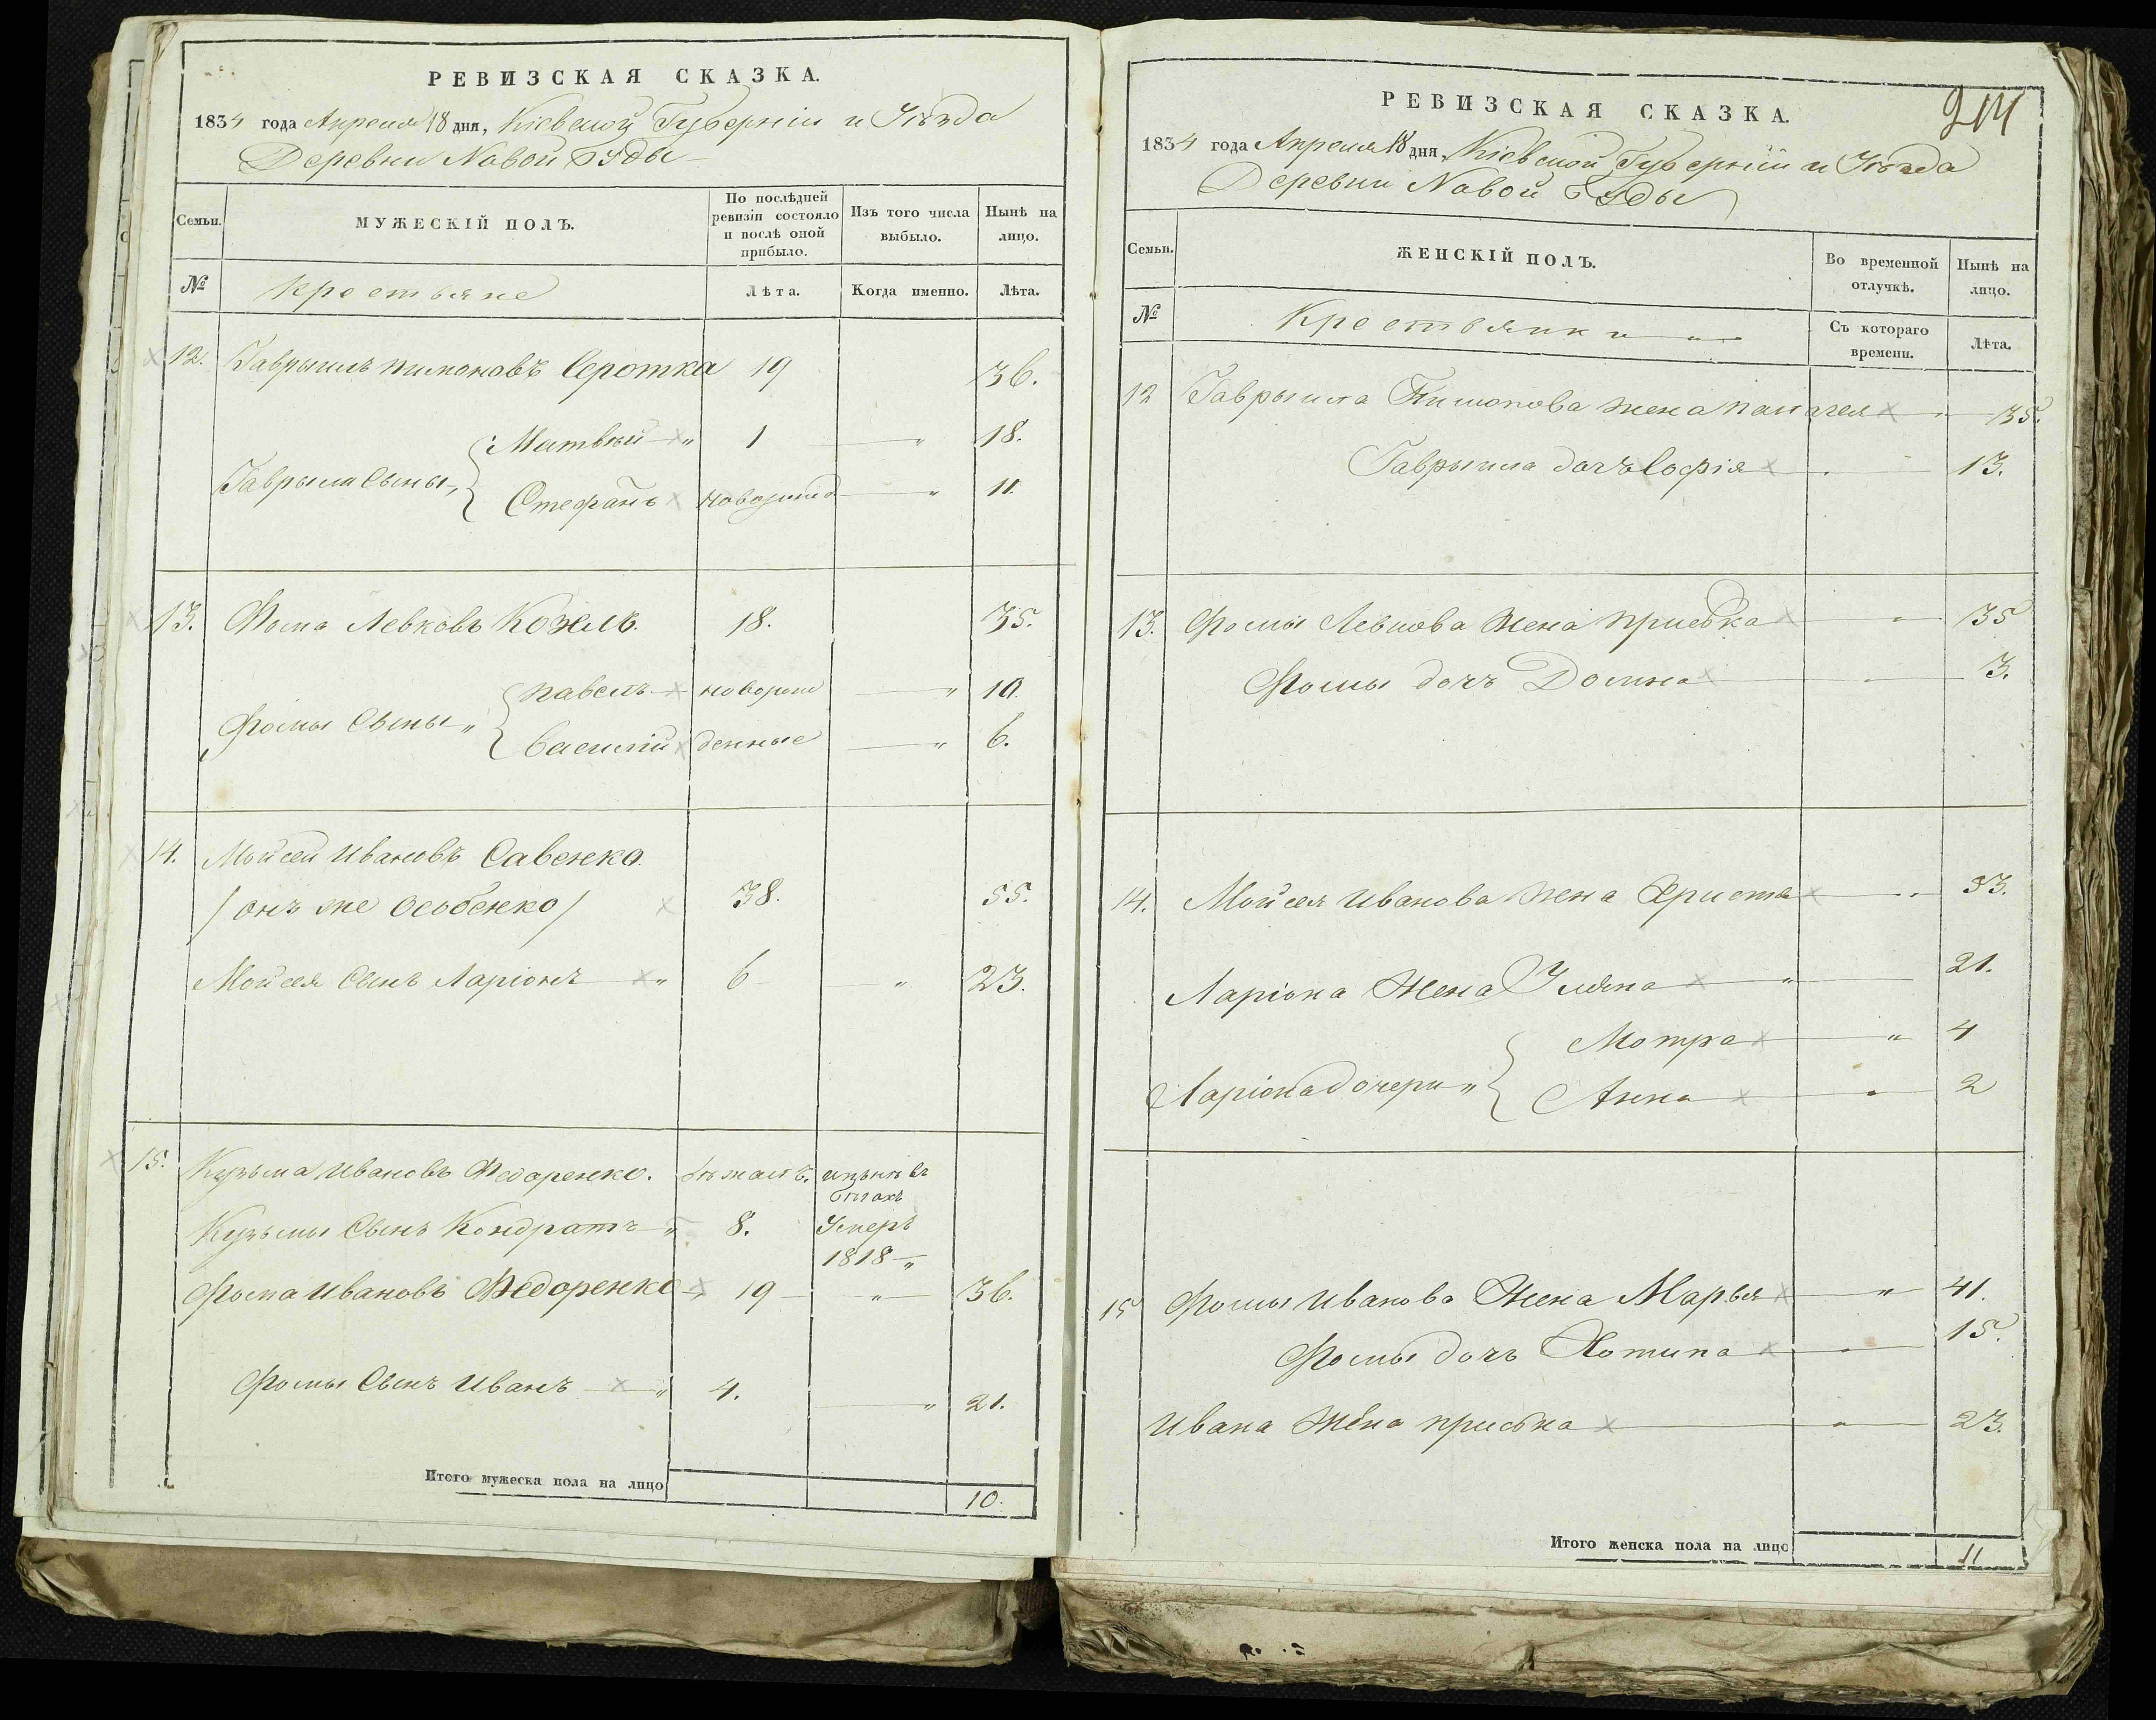 РЕВИЗСКАЯ СКАЗКА.
1834 года Апреля 18 дня, Кіевской Губерніи и Уѣзда
Деревни Новой Буды
Семьи.
МУЖЕСКІЙ ПОЛЪ.
По послѣдней ревизіи состояло и послѣ оной прибыло.
Изъ того числа выбыло.
Нынѣ на лицо.
№
Крестьяне
Лѣта.
Когда именно.
Лѣта.
12. Гаврыилъ Пимоновъ Сиротка 19 36.
Матвѣй " 1 " 18.
Гаврыла Сыны "
Стефанъ новорожд " 11.
13. Фома Левковъ Козелъ. 18. 35.
Павелъ новорож " 10.
Фомы Сыны "
Василій денные " 6.
14. Мойсей Ивановъ Савенко.
/ онъ же Особенко / 38. 55.
Мойсея Сынъ Ларіонъ " 6 " 23.
15. Кузьма Ивановъ Федоренко. бѣжалъ. и нынѣ въ
бѣгахъ
Кузьмы Сынъ Кондратъ " 8. Умеръ
1818 "
Фома Ивановъ Федоренко 19 " 36.
Фомы Сынъ Иванъ " 4. " 21.
Итого мужеска пола на лицо 10.
РЕВИЗСКАЯ СКАЗКА.
1834 года Апреля 18 дня, Кіевской Губерніи и Уѣзда
Деревни Новой Буды
Семьи.
ЖЕНСКІЙ ПОЛЪ.
Во временной отлучкѣ.
Нынѣ на лицо.
№
Крестьянки
Съ котораго времени.
Лѣта.
12 Гаврыила Пимонова жена 35.
Гаврыила дочь Софія 13.
13. Фомы Левкова жена Приська " 35
Фомы дочь Домна 3.
14. Мойсея Иванова жена Христя " 33.
Ларіона Жена Уляна " 21.
Мотра " 4
Ларіона дочери "
Анна " 2
15 Фомы Иванова Жена Марья " 41.
Фомы дочь Хотина " 15.
Ивана Жена Приська " 23.
Итого женска пола на лицо 11